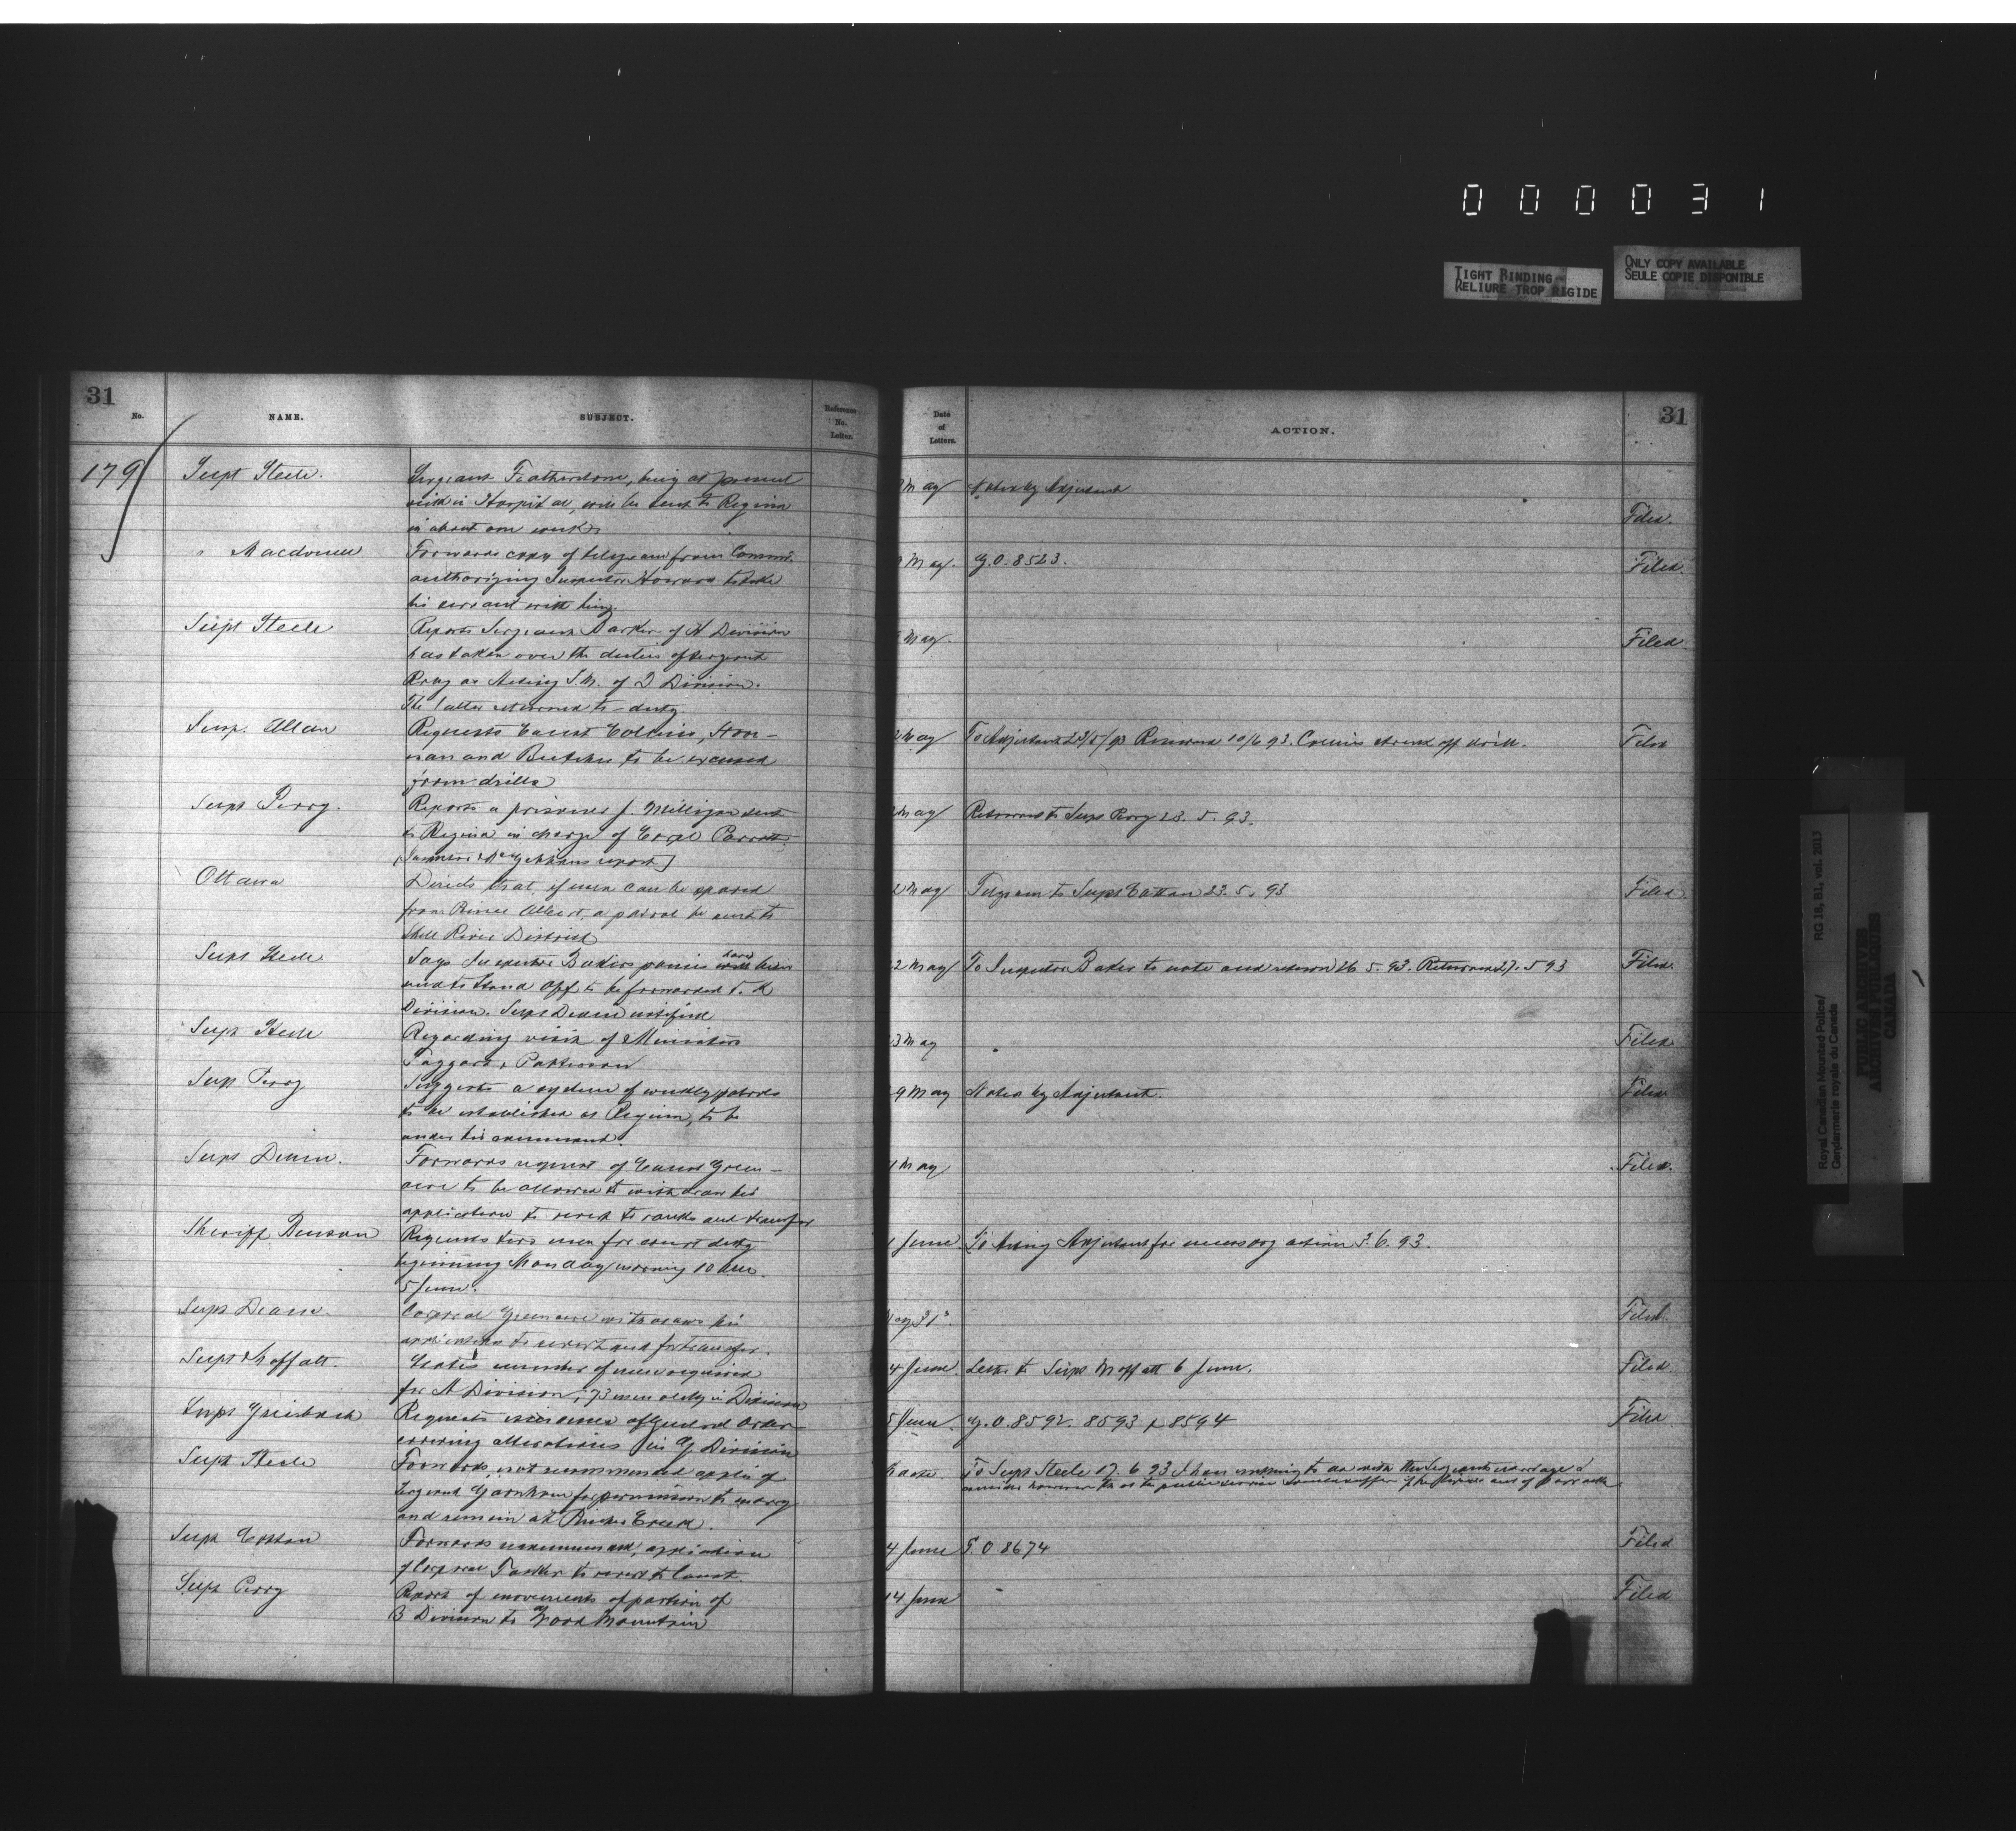 000031
TIGHT BINDING
RELIURE TROP RIGIDE
ONLY COPY AVAILABLE
SEULE COPIE DISPONIBLE
31
No.
NAME.
SUBJECT.
Reference
No.
Letter.
Date
of
Letters.
ACTION.
31
179
Supt Steele.
Sergeant Featherstone, being at present
sick in Hospital, will be sent to Regina
in about one week
May
Noted by Adjutant
Filed.
" Macdonell
Forwards copy of telegram from Commr.
authorizing Inspector Howard to take
his servant with him.
May.
G.O. 8523.
Filed.
Supt Steele
Reports Sergeant Barker of H Division
has taken over the duties of Sergeant
as Acting S.M. of D Division.
The latter returned to duty.
May.
Filed.
Insp. Allan
Requests Const Collins, Stone-
man and Butcher to be excused
from drills
2 May
To Adjutant 23/5/93 Returned 10/6 93. Collins struck off drill.
Filed
Supt Perry.
Reports a prisoner J. Milligan sent
to Regina in charge of Corpl Parrott
2 May
Returned to Supt Perry 23. 5. 93.
Ottawa
Directs that, if men can be spared
from Prince Albert, a patrol be sent to
Shell River District
2 May
Telegram to Supt Cotton 23. 5. 93
Filed
Supt Steele
Says Inspector Bakers ponies have been
sent to Stand Off to be forwarded to K
Division. Supt Deane notified
2 May
To Inspector Baker to note and return 26 5. 93. Returned 27. 5 93
Filed.
Supt Steele
Regarding visit of Ministers
Daly &amp; Patterson
3 May
Filed
Supt Perry
Suggests a system of weekly patrols
to be established at Regina, to be
under his command.
9 May
Noted by Adjutant.
Filed
Supt Deane.
Forwards request of Const Green-
acre to be allowed to withdraw his
application to revert to ranks and transfer
May
Filed.
Sheriff Benson
Requests two men for court duty
beginning Monday morning 10
5 June.
June
To Acting Adjutant for necessary action 3. 6. 93.
Supt Deane.
Corporal Greenacre withdraws his
application to revert and for transfer.
31
Filed.
Supt Moffatt.
States number of men required
for A Division; 73 men only in Division
4 June.
Letter to Supt Moffatt 6 June.
Filed
Supt Griesbach
Requests issuance of General Order
covering alterations in G Division
5 June.
G.O. 8592. 8593 &amp; 8594
Filed
Supt Steele
Forwards, not recommended applicn of
Sergeant for permission to marry
and remain at Pincher Creek.
To Supt Steele 17. 6 93 I have nothing to do with the Sergeants marriage I
consider however that the public service
Supt Cotton
Forwards recommended, application
of Corporal to revert to Const.
4 June
G.O. 8674
Filed
Supt Perry
Report of movements of portion of
B Division to Wood Mountain
14 June
Filed
Royal Canadian Mounted Police/
Gendarmerie royale du Canada
RG 18, B1, vol. 2013
PUBLIC ARCHIVES
ARCHIVES PUBLIQUES
CANADA